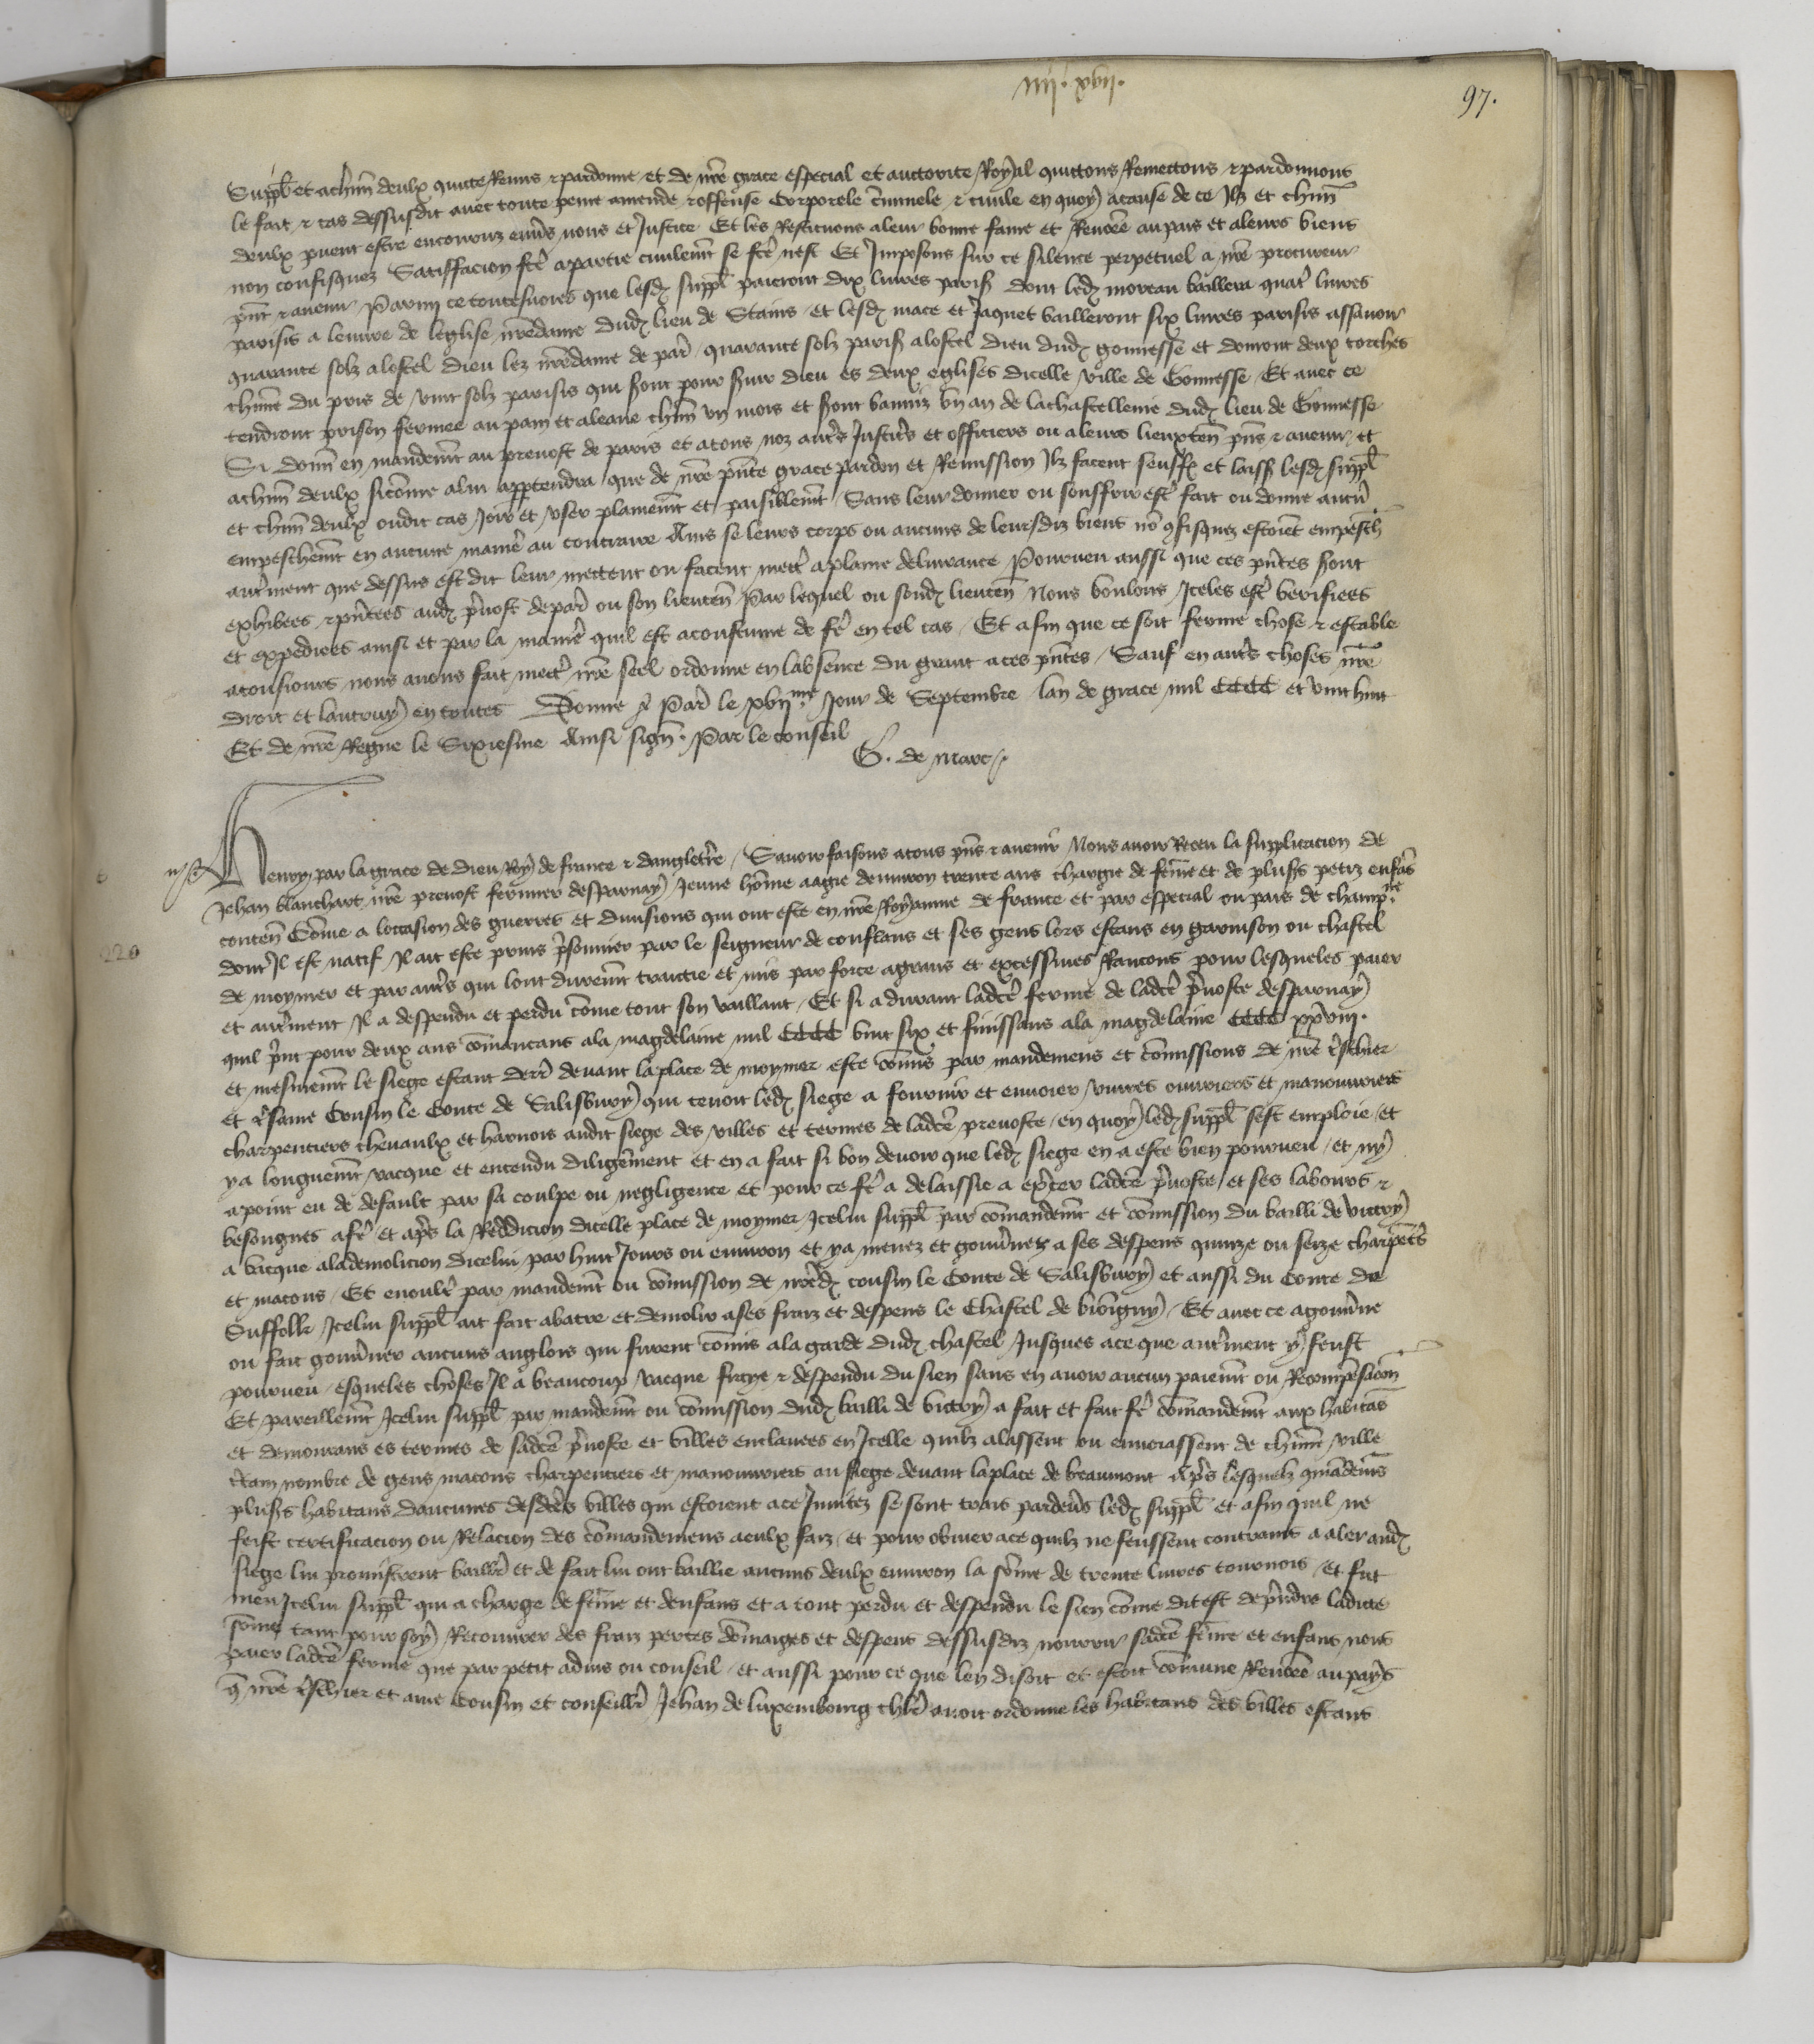 iiii. xvii.
97.
Suppl̃ et achũn deulx quicte Remis et pardonne et de nr̃e grace especial et auctorite Royal quittons Remettons et pardonnons
le fait et cas dessusdit avec toute peine amende et offense Corporele cr̃iminele et civile en quoy acause de ce Ilz et chũn
deulx pueent estre encouruz env̾s nous et Justice Et les Restituons aleur bonne fame et Renõe au pais et aleurs biens
non confisquez Satisffacion fc̃e apartie civilemt̃ se fc̃e nest Et Imposons sur ce silence perpetuel a nr̃e procureur
pñt et avenir Parmi ce toutesvoies que lesd̾ suppl̃ paieront dix livres paris̃ dont led̾ moreau baillera quatr̾ livres
parisis a leuvre de leglise nr̃edame dud̾ lieu de Stains et lesd̾ mace et Jaquet bailleront six livres parisis assavoir
quarante solz alostel dieu lez nr̃edame de par̾ quarante solz paris̃ alostel dieu dud̾ gonnesse et donront deux torches
chũne du pris de vint solz parisis qui s̾ont pour s̾vir dieu es deux eglises dicelle ville de Gonnesse Et avec ce
tendront prison fermee au pain et aleaue chũn un mois et s̾ont banniz un an de lachastellenie dud̾ lieu de Gonnesse
Si donñ en mandemt̃ au prevost de paris et atous noz autr̾s Justic̾s et officiers ou aleurs lieuxteñ pñs et avenir et
achũn deulx sicõme alui appartendra que de nr̃e pñte grace pardon et Remission Ilz facent seuffr̾ et laiss̾ lesd̾ suppl̃
et chũn deulx oudit cas Joir et user plainemt̃ et paisiblemt̃ Sans leur donner ou souffrir estr̾ fait ou donne aucũ
empeschemt̃ en aucune manier̾ au contraire Ains se leurs corps ou aucuns de leursdiz biens nõ 9fisquez estoiẽt empesch̾
autr̾ment que dessus est dit leur mettent ou facent mectr̾ aplaine delivrance Pourveu aussi que ces pñtes s̾ont
exhibees et pñtees aud̾ p̾vost depar̾ ou son lieuteñ Par lequel ou sond̾ lieuteñ Nous voulons Iceles estr̾ verifiees
et expediees ainsi et par la manier̾ quil est acoustume de fr̾e en tel cas Et afin que ce soit ferme chose et estable
atousiours nous avons fait mectr̾ nr̃e seel ordonne en labsence du grant aces pñtes Sauf en autr̾s choses nr̃e
droit et lautruy en toutes Donne a Par̾ le xvii.me Jour de Septembre lan de grace mil CCCC et vint huit
Et de nr̃e Regne le Sixiesme Ainsi sign̾. Par le conseil
G. de Marc
Henry par lagrace de dieu Roy de france et dangletr̾re Savoir faisons atous pñs et avenir Nous avoir Receu la supplicacion de
Jehan blanchart nr̃e prevost fermier desparnay Jeune hõme aagie denviron trente ans chargie de fẽme et de plus̾s petiz enfãs
conteñ Cõme a loccasion des guerres et divisions qui ont este en nr̃e Royaume de france et par especial ou pais de champ.ne
dont Il est natif Il ait este prins p̾sonnier par le seigneur de conflans et ses gens lors estans en garnison ou chastel
de moymer et par autr̾s qui lont duremt̃ traictie et mis par force agrans et excessives Rancons pour lesqueles paier
et autr̾ment Il a despendu et perdu cõme tout son vaillant Et si a durant ladc̃e ferme de ladc̃e p̾voste desparnay
quil p̾nt pour deux ans cõmencans ala magdelaine mil CCCC vint six et finissans ala magdelaine CCCC xxviii.
et mesmemt̃ le siege estant derr̾ devant laplace de moymer este cõmis par mandemens et cõmissions de nr̃e tr̾schier
et tr̾same Cousin le Conte de Salisbury qui tenoit led̾ siege a fournir et envoier vivres ouvriers et manouvriers
charpentiers chevaulx et harnois audit siege des villes et termes de ladc̃e prevoste en quoy led̾ suppl̃ sest emploie et
ya longuemt̃ vacque et entendu diligẽment et en a fait si bon devoir que led̾ siege en a este bien pourveu et ny
apoint eu de default par sa coulpe ou negligence et pour ce fr̾e a delaissie a exp̾cer ladc̃e p̾voste et ses labours et
besongnes afr̾e et ap̾s la Reddicion dicelle place de moymer Icelui suppl̃ par cõmandemt̃ et cõmission du bailli de vittry
a vacque alademolicion dicelui par huit Jours ou environ et ya menez et gouv̾nez a ses despens quinze ou seize charpẽt̾s
et macons Et enoultr̾ par mandemt̃ ou cõmission de nr̃ed̾ cousin le Conte de Salisbury et aussi du Conte de
Suffolk Icelui suppl̃ ait fait abatre et demolir ases fraiz et despens le Chastel de Et avec ce agouv̾ne
ou fait gouv̾ner aucuns anglois qui furent cõmis ala garde dud̾ chastel Jusques ace que autr̾ment y feust
pourveu esqueles choses Il a beaucoup vacque fraye et despendu du sien sans en avoir aucun paiemt̃ ou Recompẽsacion
Et pareillemt̃ Icelui suppl̃ par mandemt̃ ou cõmission dud̾ bailli de vittry a fait et fait fr̾e cõmandemt̃ aux habitãs
et demourans es termes de sadc̃e p̾voste et villes enclavees en Icelle quilz alassent ou envoiassent de chũne ville
c̾tain nombre de gens macons charpentiers et manouvriers au siege devant laplace de beaumont Ap̾s lesquelz 9mãdemẽs
plus̾s habitans daucunes desdc̃es villes qui estoient ace Invitez se sont trais pardev̾s led̾ suppl̃ et afin quil ne
feist certifficacion ou Relacion des cõmandemens aeulx faiz et pour obvier ace quilz ne feussent contrains a aler aud̾
siege lui promistrent baillr̾ et de fait lui ont baillie aucuns deulx environ la sõme de trente livres tournois et fut
meu Icelui suppl̃ qui a charge de fẽme et denfans et a tout perdu et despendu le sien cõme dit est de p̾ndre ladicte
sõme tant pour soy Recouvrer des fraiz pertes dõmaiges et despens dessusdiz nourrir sadc̃e fẽme et enfans nous
paier ladc̃e ferme que par petit advis ou conseil et aussi pour ce que len disoit et estoit cõmune Renõe au pays
q̃ nr̃e tr̾schier et ame Cousin et conseillr̾ Jehan de luxembourg chlr̾ avoit ordonne les habitans des villes estans